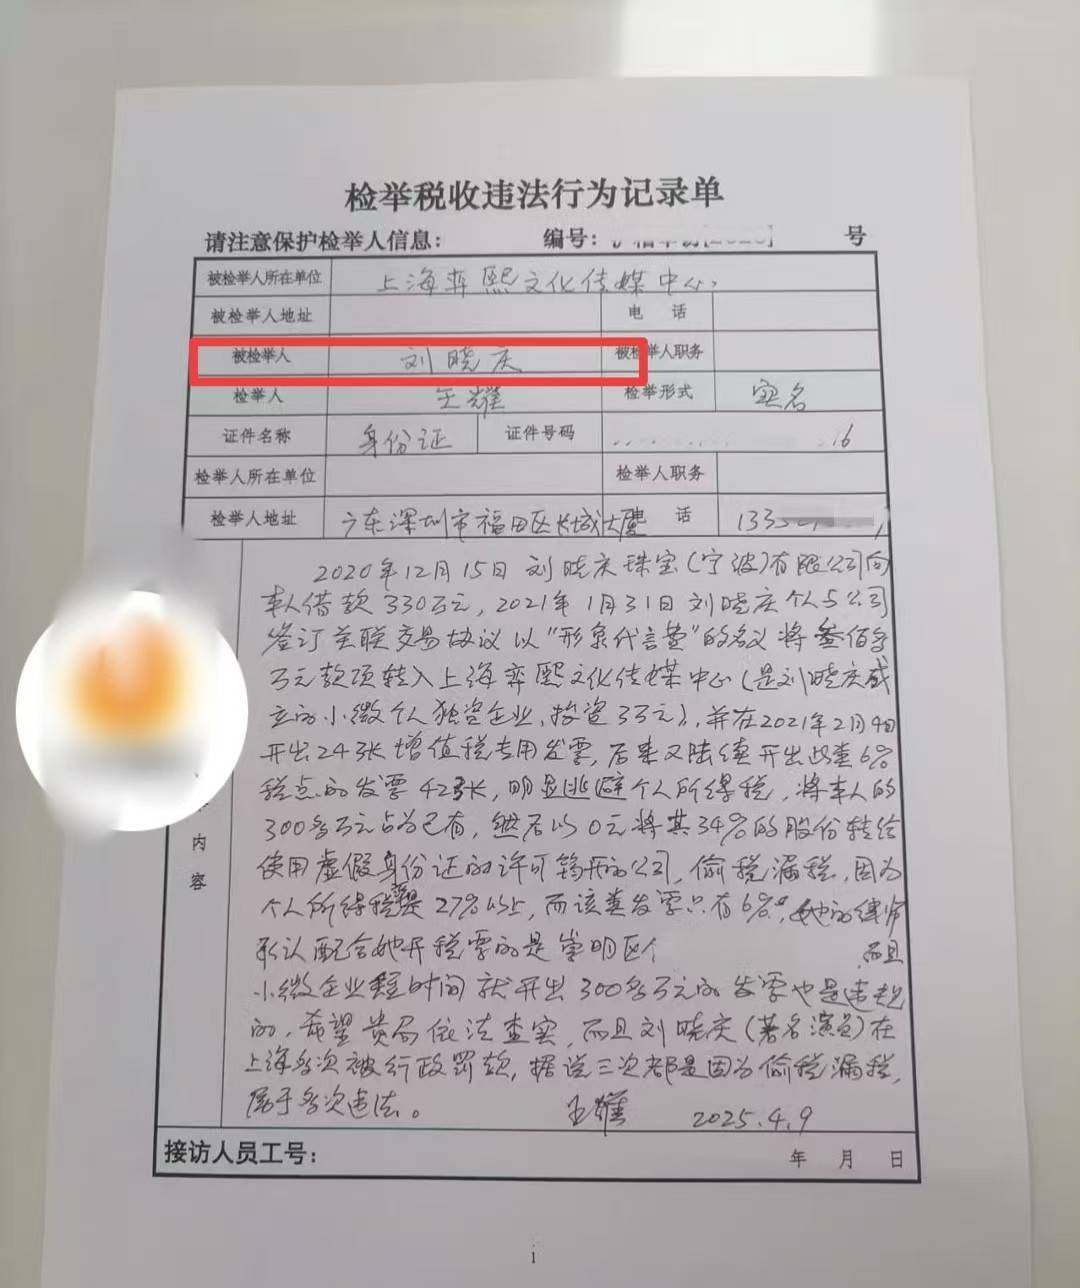 检举税收违法行为记录单
请注意保护检举人信息： 编号： 号
被检举人所在单位 上海弈熙文化传媒中心
被检举人地址 电 话
被检举人 刘晓庆 被检举人职务
检举人 王耀 检举形式 实名
证件名称 身份证 证件号码 16
检举人所在单位 检举人职务
检举人地址 广东深圳市福田区长城大厦 话 133
2020年12月15日刘晓庆珠宝(宁波)有限公司向
本人借款330万元，2021年1月31日刘晓庆个人与公司
签订关联交易协议以“形象代言费”的名义将叁佰多
万元款项转入上海弈熙文化传媒中心(是刘晓庆成
立的小微个人独资企业，投资3万元)，并在2021年2月4日
开出24张增值税专用发票，后来又陆续开出此类6%
税点的发票42张，明显逃避个人所得税，将本人的
300多万元占为己有，然后以0元将其34%的股份转给
使用虚假身份证的许可筠开的公司，偷税漏税，因为
个人所得税是27%以上，而该类发票只有6%，她的律师
承认配合她开税票的是崇明区个 而且
小微企业短时间就开出300多万元的发票也是违规
的，希望贵局依法查实，而且刘晓庆(著名演员)在
上海多次被行政罚款，据说三次都是因为偷税漏税，
属于多次违法。 王耀 2025.4.9
内
容
接访人员工号： 年 月 日
1